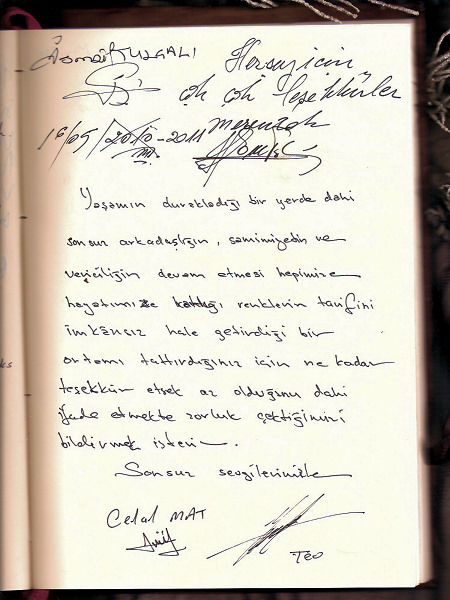 Osman TUZGALI
Herşey için
çok çok Teşekkürler
16/05/2010-2011
Yaşamın durakladığı bir yerde dahi
sonsuz arkadaşlığın, samimiyetin ve
vericiliğin devam etmesi hepimize
hayatımıze kattığı renklerin tarifini
imkânsız hale getirdiği bir
ortamı tattırdığınız için ne kadar
teşekkür etsek az olduğunu dahi
ifade etmekte zorluk çektiğimizi
bildirmek isteriz.
Sonsuz sevgilerimizle
Celal MAT
TEO